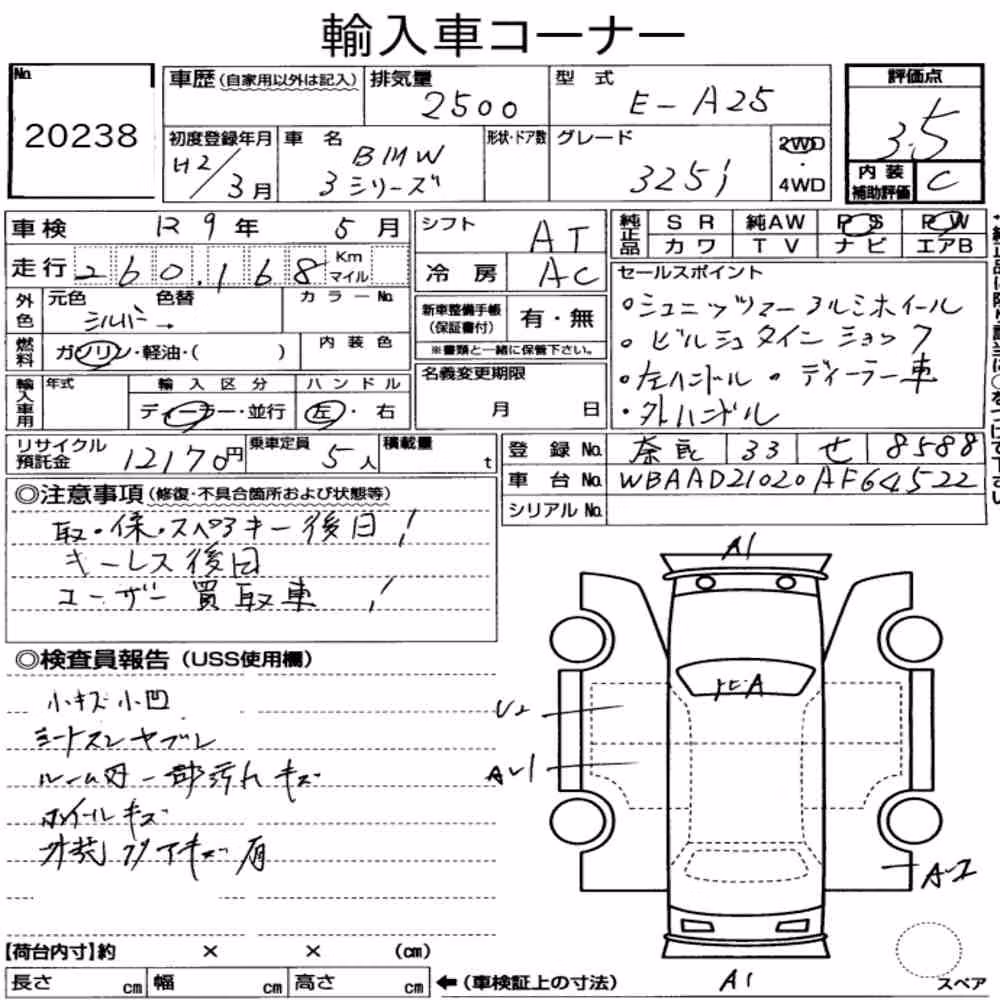 輸入車コーナー
No. 20238
車歴(自家用以外は記入) 排気量 2500 型式 E-A25 評価点 3.5
初度登録年月 H2/3月 車名 BMW 3シリーズ 形状・ドア数 グレード 325i 2WD・4WD 内装補助評価 C
車検 R9年 5月 シフト AT 純正品 SR 純AW PS PW
カワ TV ナビ エアB
走行 260,168 Km マイル 冷房 AC
外色 元色 シルバー 色替 → カラーNo.
燃料 ガソリン・軽油・( ) 内装色
新車整備手帳(保証書付) 有・無
※書類と一緒に保管下さい。
セールスポイント
・シュニッツァーアルミホイール
・ビルシュタインショック
・左ハンドル ・ディーラー車
・外ハンドル
輸入車用 年式 輸入区分 ディーラー・並行 ハンドル 左・右
名義変更期限 月 日
リサイクル預託金 12170円 乗車定員 5人 積載量 t
登録No. 奈良 33 せ 8588
車台No. WBAAD21020AF64522
シリアルNo.
◎注意事項(修復・不具合箇所および状態等)
取・保・スペアキー後日!
キーレス後日
ユーザー買取車!
◎検査員報告(USS使用欄)
小キズ小凹
シートスレヤブレ
ルーム内一部汚れキズ
ホイールキズ
外装 キズ有
A1
U2
A1
A2
A1
スペア
【荷台内寸】約 × × (cm)
長さ cm 幅 cm 高さ cm ←(車検証上の寸法)